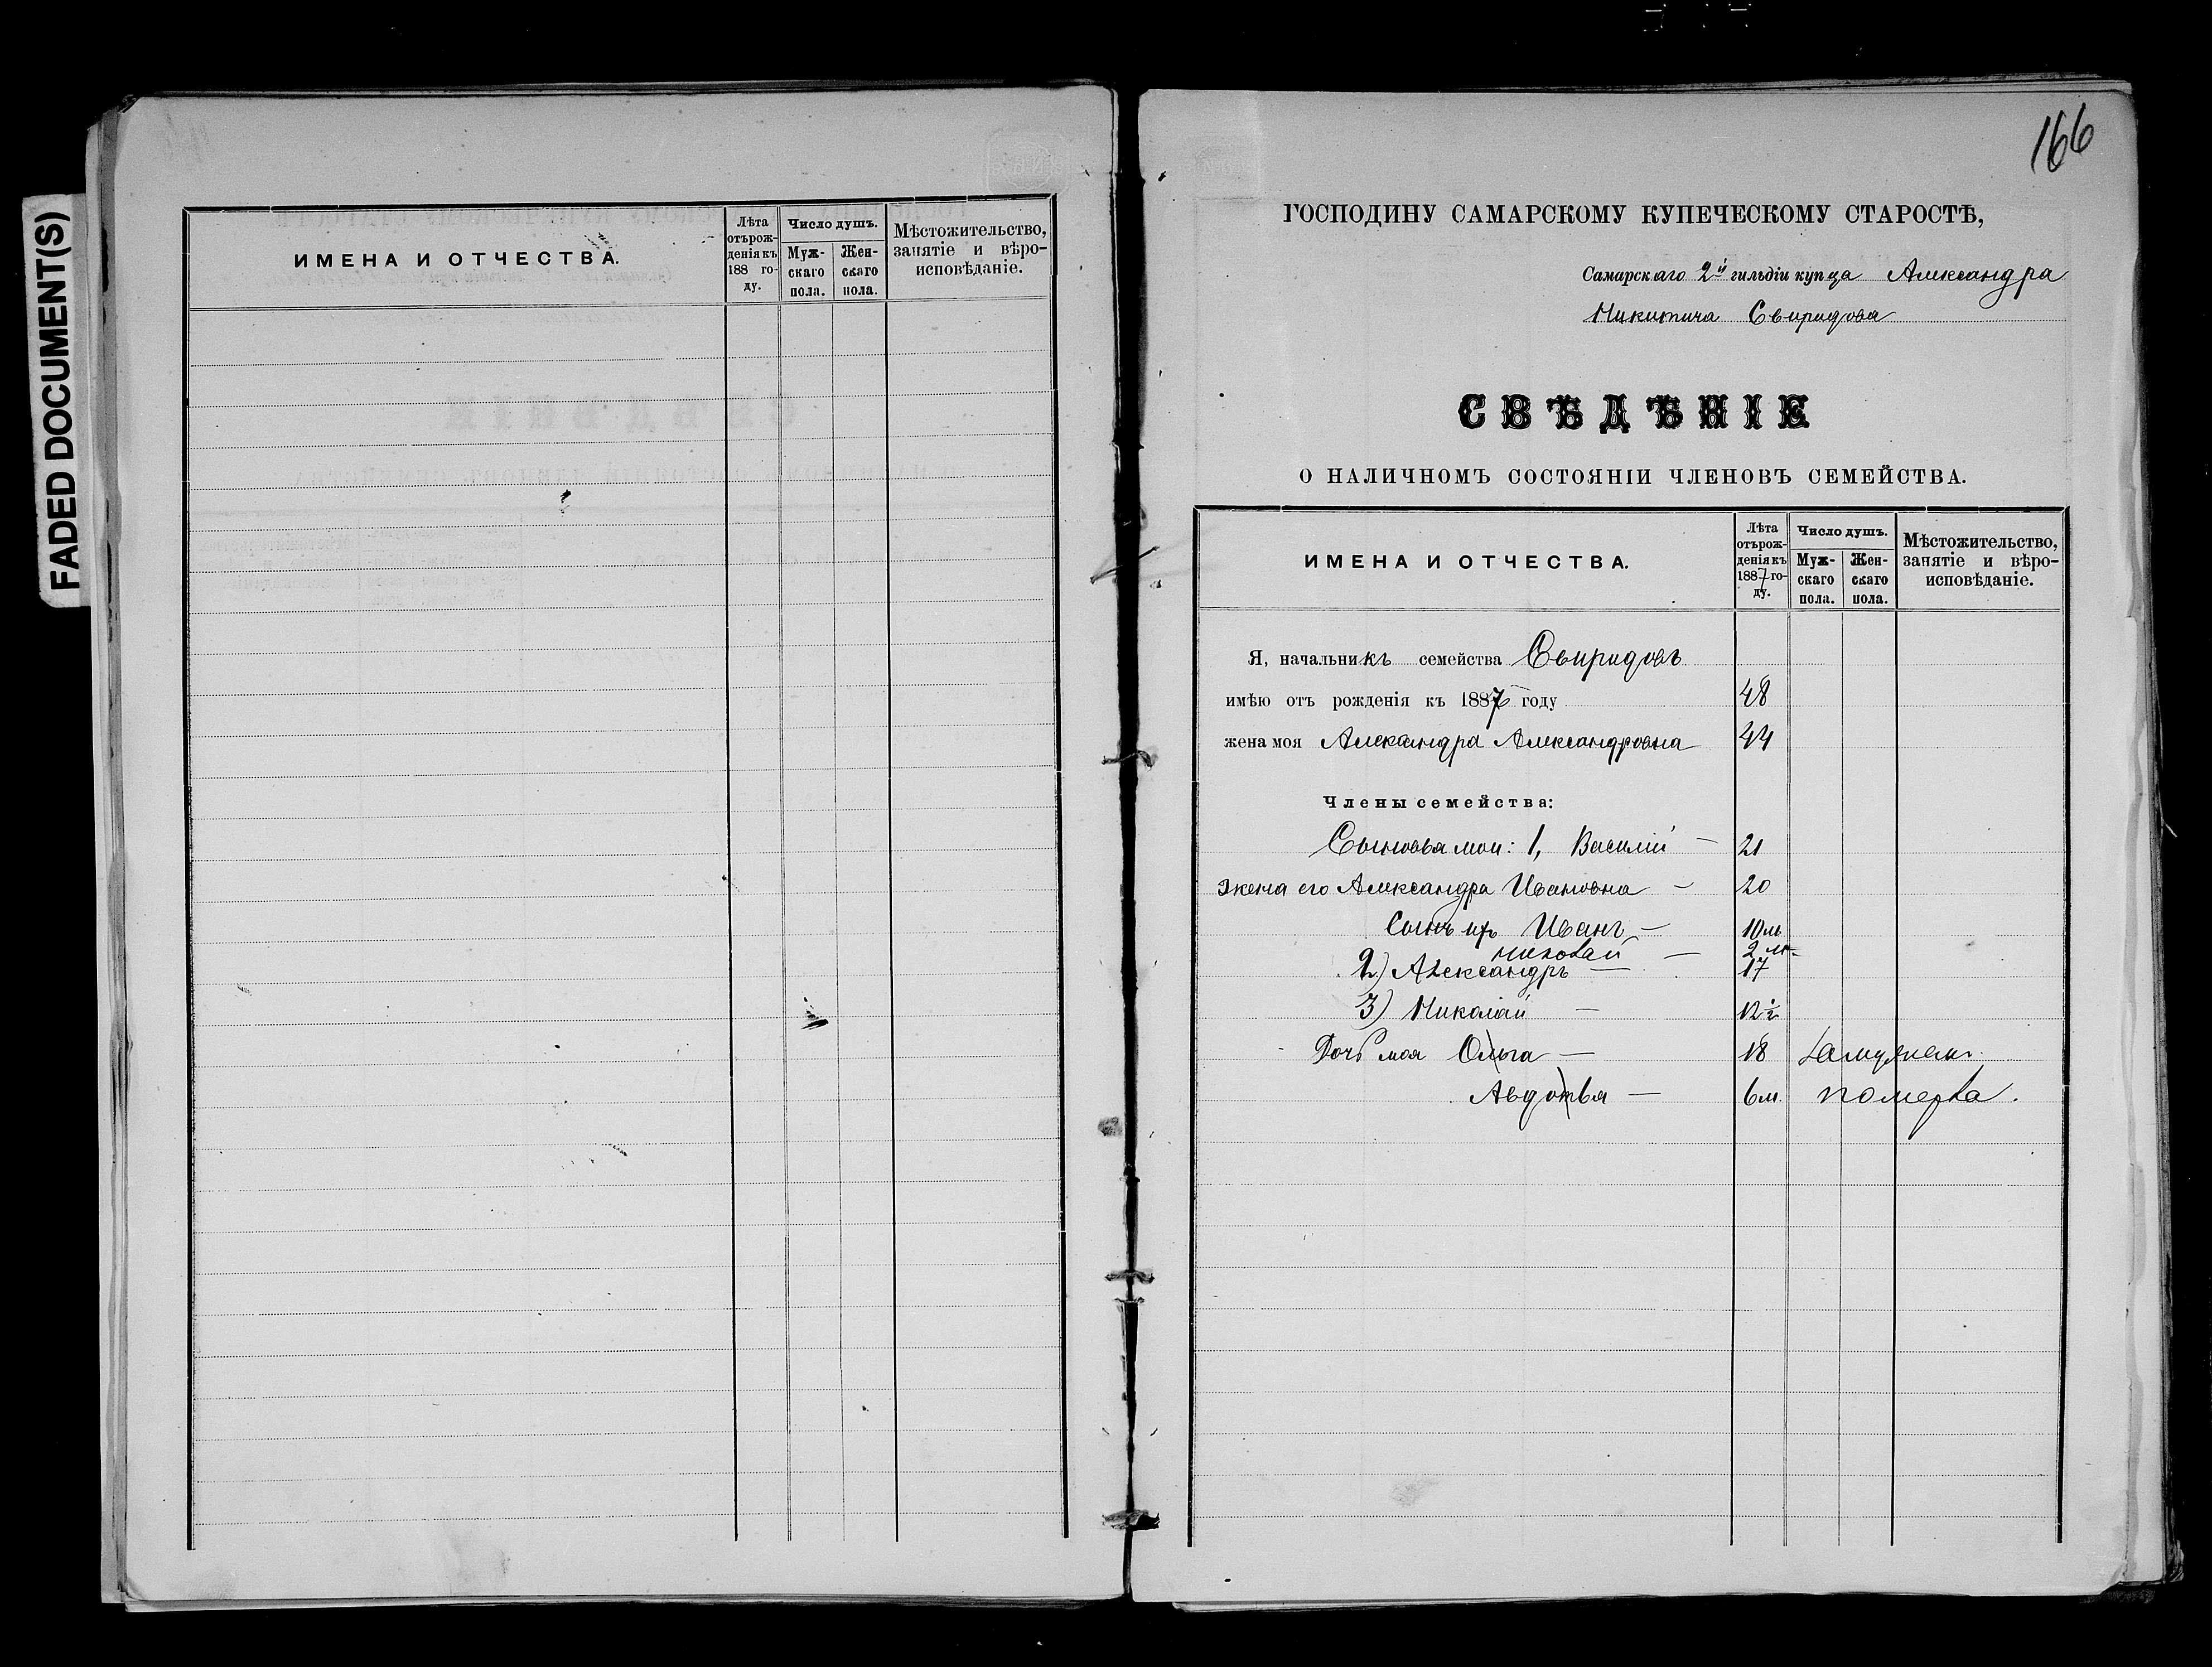 FADED DOCUMENT(S)
ИМЕНА И ОТЧЕСТВА.
Лѣта отърож-денія къ 188 го-ду.
Число душъ.
Муж-скаго пола.
Жен-скаго пола.
Мѣстожительство, занятіе и вѣро-исповѣданіе.
166
ГОСПОДИНУ САМАРСКОМУ КУПЕЧЕСКОМУ СТАРОСТѢ,
Самарскаго 2й гильдіи купца Александра
Никитича Свиридова
СВѢДѢНІЕ
О НАЛИЧНОМЪ СОСТОЯНІИ ЧЛЕНОВЪ СЕМЕЙСТВА.
ИМЕНА И ОТЧЕСТВА.
Лѣта отърож-денія къ 1887 го-ду.
Число душъ.
Муж-скаго пола.
Жен-скаго пола.
Мѣстожительство, занятіе и вѣро-исповѣданіе.
Я, начальникъ семейства Свиридовъ
имѣю отъ рожденія къ 1887 году 48
жена моя Александра Александровна 44
Члены семейства:
Сыновья мои: 1, Василій — 21
жена его Александра Ивановна — 20
Сынъ ихъ Иванъ — 10 м.
Николай — 2 м.
2) Александръ — 17
3) Николай — 12 ½
Дочь моя Ольга — 18 замужемъ.
Авдотья — 6 м. померла.